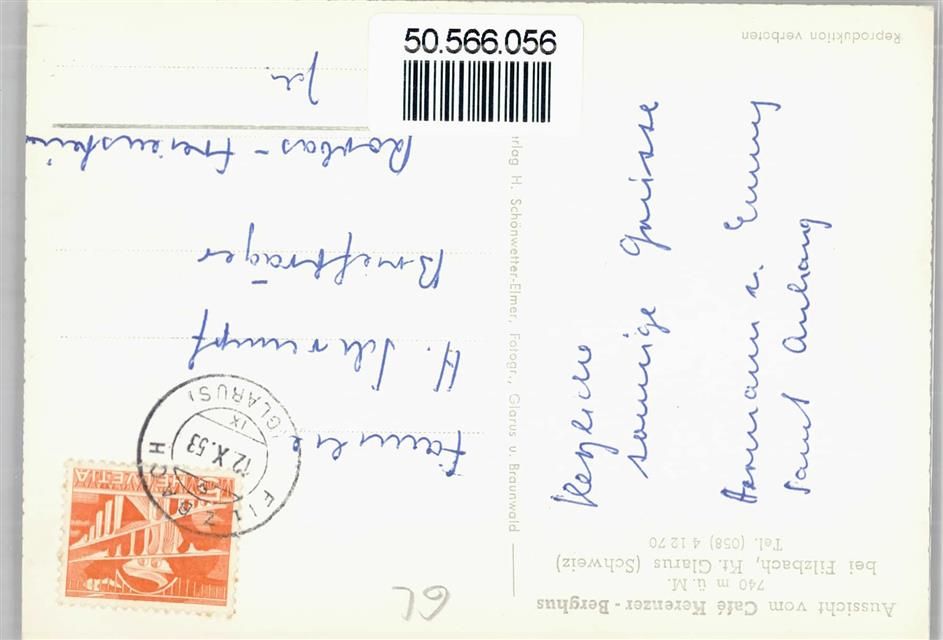 50.566.056
Aussicht vom Café Kerenzer-Berghus
740 m ü. M.
bei Filzbach, Kt. Glarus (Schweiz)
Tel. (058) 4 12 70
Herzliche
sonnige Grüsse
Hermann u. Emmy
samt Anhang
Verlag H. Schönwetter-Elmer, Fotogr., Glarus u. Braunwald
Reproduktion verboten
HELVETIA
5
FILZBACH
12.X.53
IX
(GLARUS)
Familie
H. Schrumpf
Briefträger
Rorbas-Freienstein
Zch.
GL